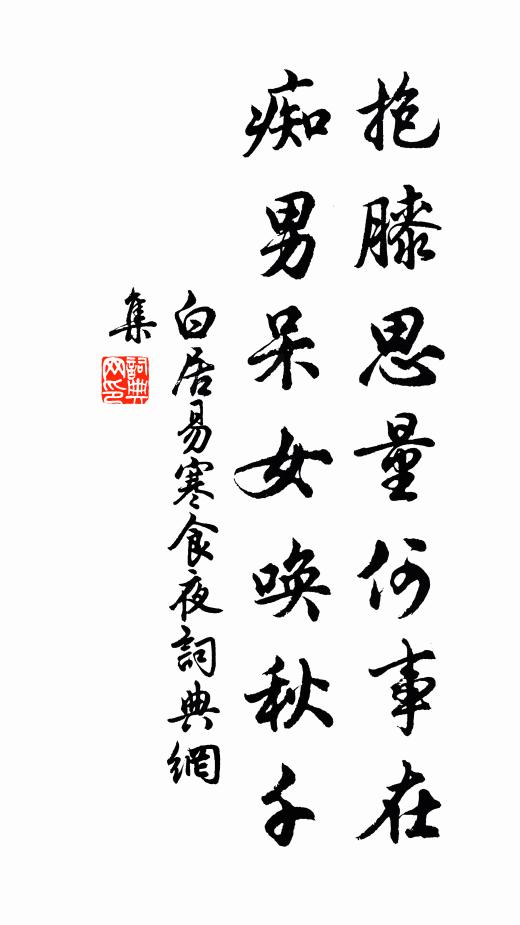 抱膝思量何事在
痴男呆女唤秋千
白居易寒食夜詞典網
集
詞典網印